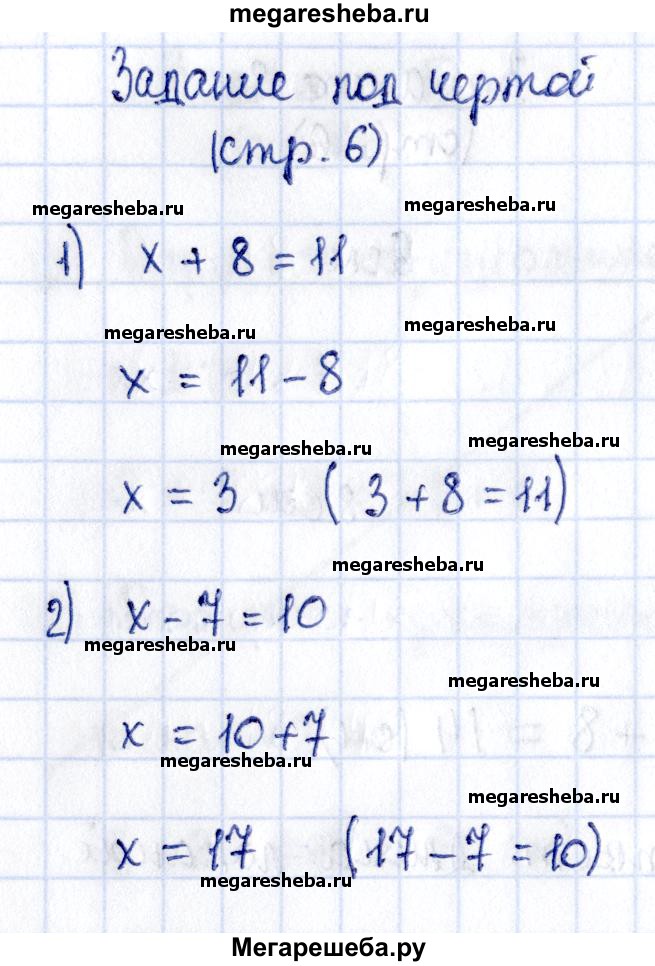 megaresheba.ru
Задание под чертой
(стр. 6)
megaresheba.ru
megaresheba.ru
1) x + 8 = 11
megaresheba.ru
megaresheba.ru
x = 11 - 8
megaresheba.ru
megaresheba.ru
x = 3 (3 + 8 = 11)
megaresheba.ru
2) x - 7 = 10
megaresheba.ru
megaresheba.ru
x = 10 + 7
megaresheba.ru
megaresheba.ru
x = 17 (17 - 7 = 10)
megaresheba.ru
Мегарешеба.ру